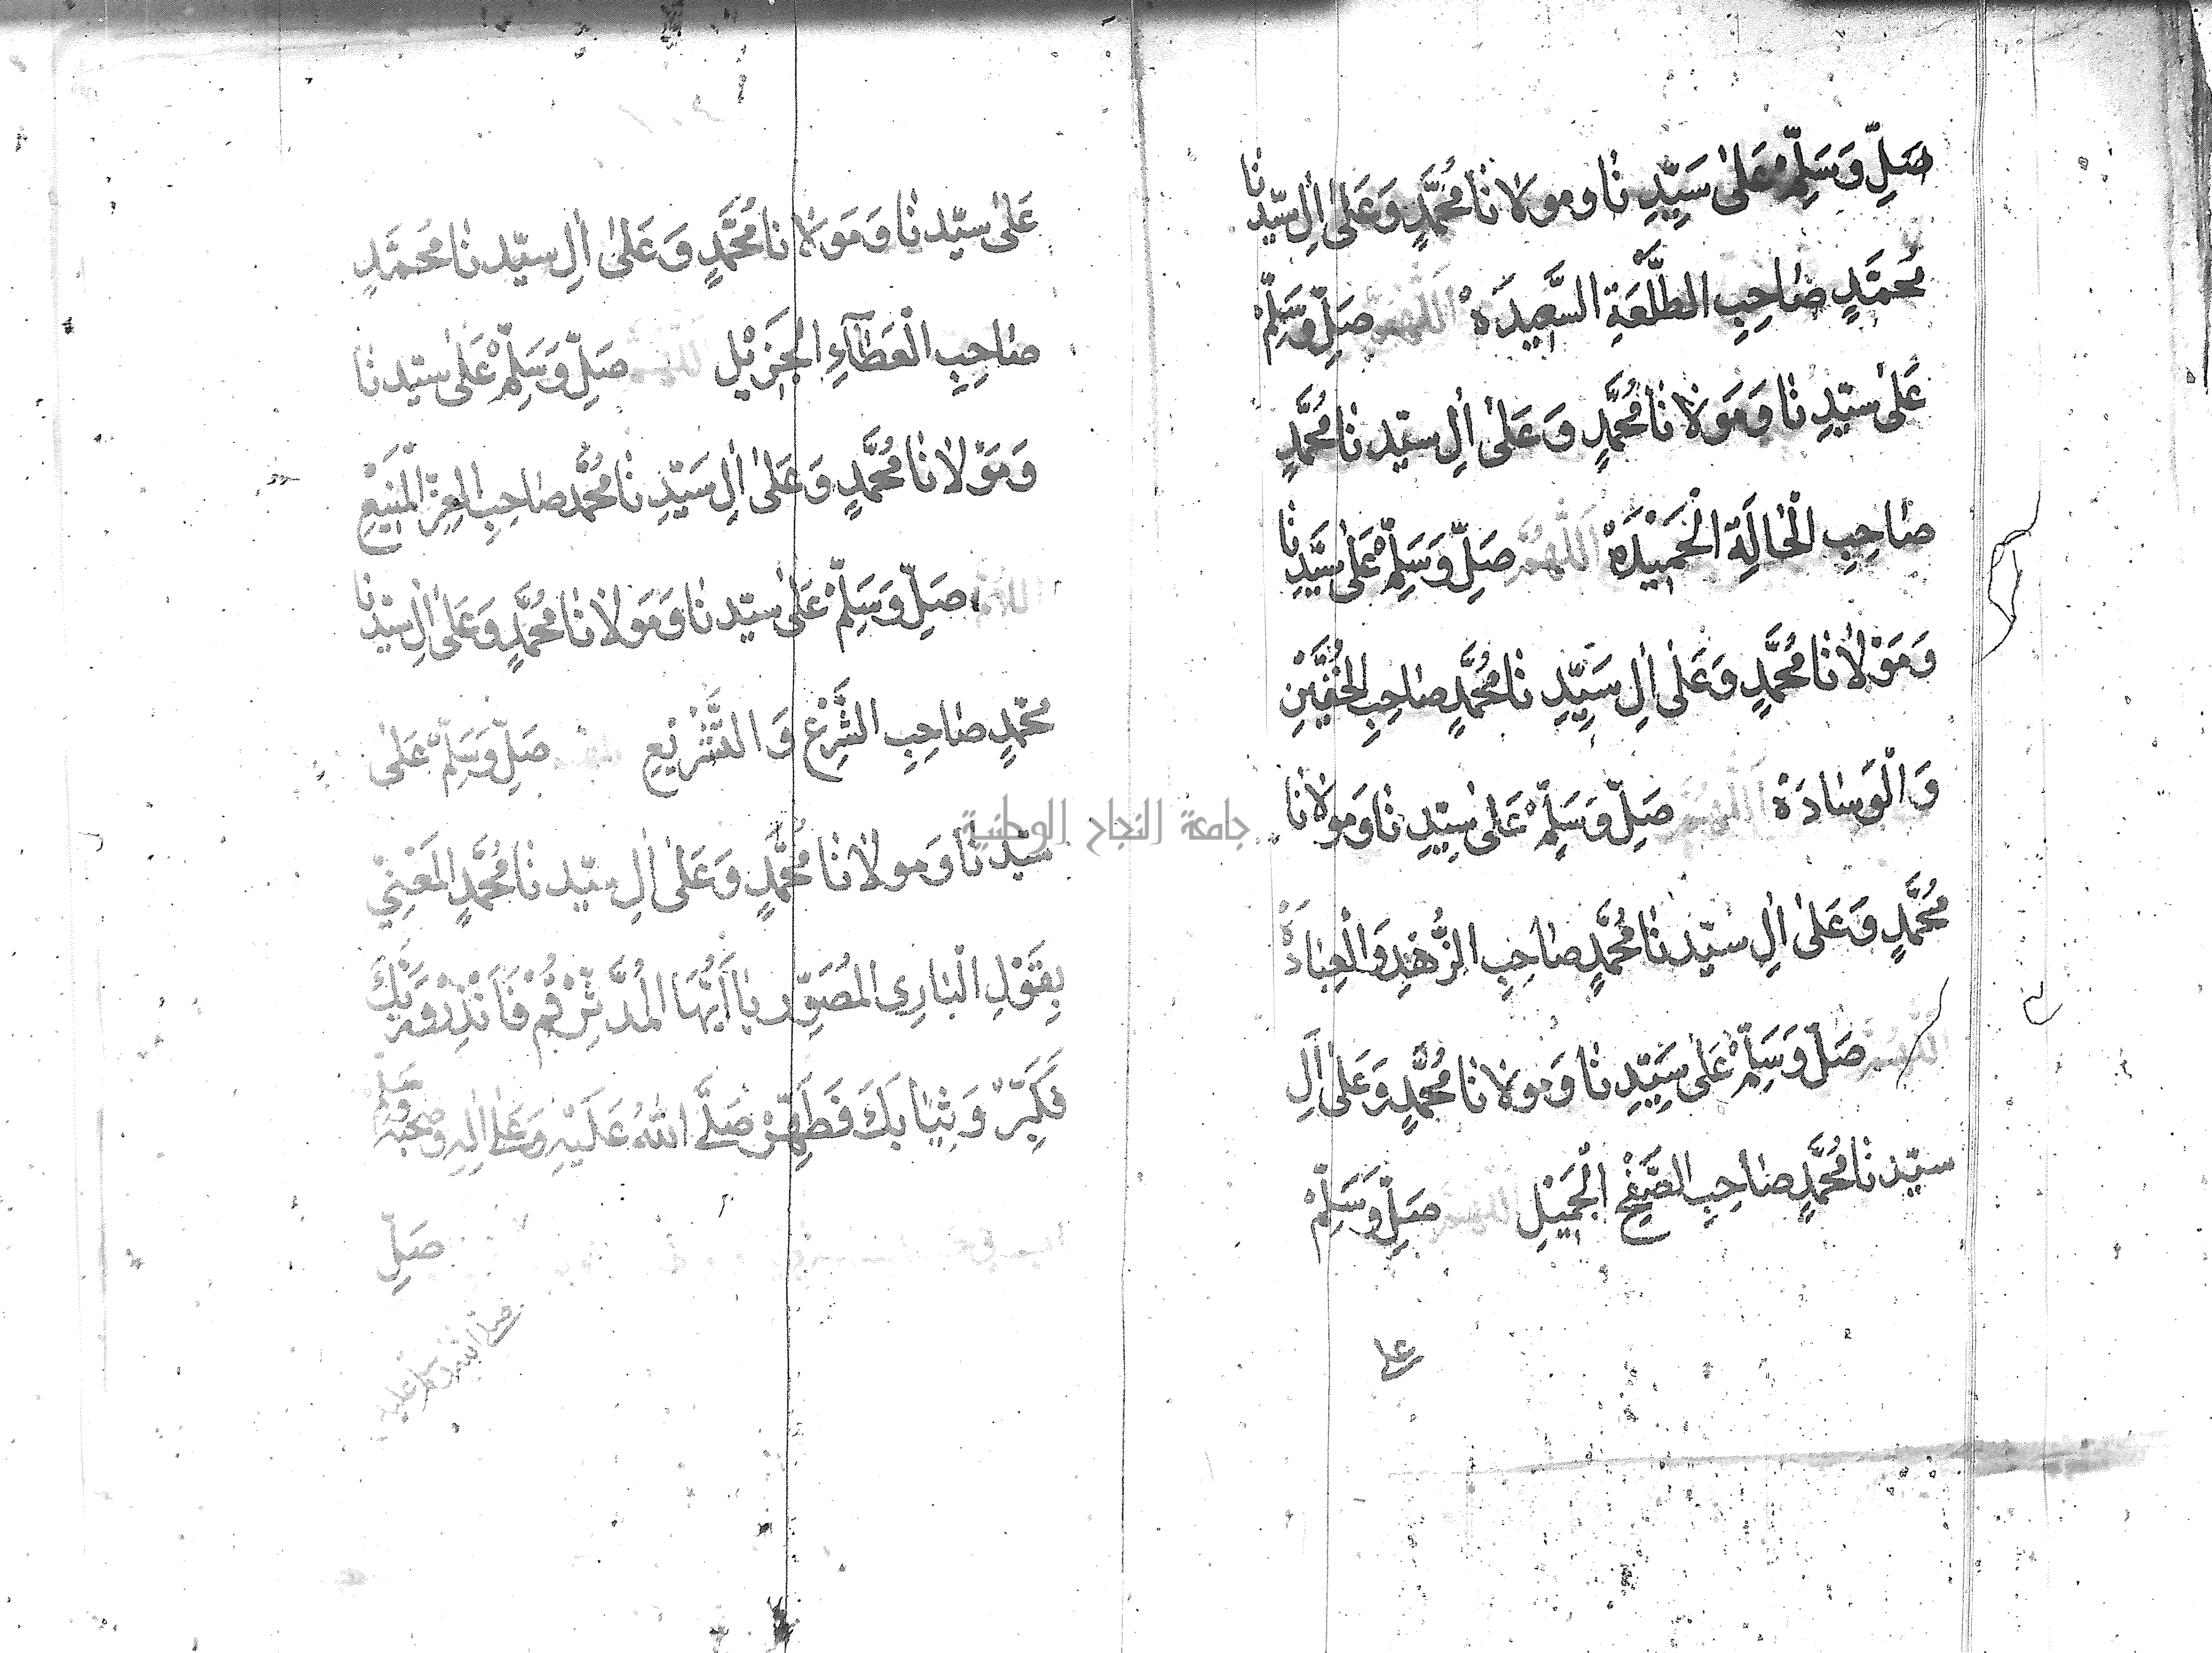 صَلِّ وَسَلِّمْ عَلىٰ سَيِّدِنَا ومولانا مُحَمَّدٍ وَعَلىٰ اٰلِ سيّدنا
مُحمَّدٍ صَاحِبِ الطَّلْعَةِ السَّعِيدَةْ اَللّٰهُمَّ صَلِّ وَسَلِّمْ
عَلىٰ سيّدِنَا وَمَولانَا مُحَمَّدٍ وَعَلىٰ اٰلِ سيّدِنَا مُحَمَّدٍ
صَاحِبِ الْحَالَةِ الْحَمِيْدَةْ اَللّٰهُمَّ صَلِّ وَسَلِّمْ عَلىٰ سَيِّدِنَا
وَمَوْلَانَا مُحَمَّدٍ وَعَلىٰ اٰلِ سَيِّدِنَا مُحَمَّدٍ صَاحِبِ الْخُفَّيْنِ
وَالْوَسَادَةْ اَللّٰهُمَّ صَلِّ وَسَلِّمْ عَلىٰ سَيِّدِنَا وَمَولَانَا
مُحَمَّدٍ وَعَلىٰ اٰلِ سيّدنَا مُحَمَّدٍ صَاحِبِ الزُّهْدِ وَالْعِبَادَةْ
اَللّٰهُمَّ صَلِّ وَسَلِّمْ عَلىٰ سَيِّدِنَا وَمَولانَا مُحَمَّدٍ وَعَلىٰ اٰلِ
سيّدنَا مُحَمَّدٍ صَاحِبِ الصَّفْحِ الْجَمِيْلِ اللّٰهُمَّ صَلِّ وَسَلِّمْ
على
عَلىٰ سيّدنَا وَمَولانَا مُحَمَّدٍ وَعَلىٰ اٰلِ سيّدنَا مُحَمَّدٍ
صَاحِبِ الْعَطَآءِ الْجَزِيْلِ اللّٰهُمَّ صَلِّ وَسَلِّمْ عَلىٰ سيّدنَا
وَمَوْلَانَا مُحَمَّدٍ وَعَلىٰ اٰلِ سَيِّدِنَا مُحَمَّد صَاحِبِ الْعِزِّ الْمَنِيْعِ
اللّٰهُمَّ صَلِّ وَسَلِّمْ عَلىٰ سيّدنَا وَمَوَلَانَا مُحَمَّدٍ وَعَلىٰ اٰلِ سيّدنا
مُحَمّدٍ صَاحِبِ الشَّرْعِ وَالتَّشْرِيْعِ اللّٰهُمَّ صَلِّ وَسَلِّمْ عَلىٰ
سيّدنَا وَمولَانَا مُحَمَّدٍ وَعَلىٰ اٰلِ سيّدنَا مُحَمَّدٍ الْمَعْنِيِّ
بِقَوْلِ الْبَارِى الْمُصَوِّر يَا اَيُّهَا الْمُدَّثِّرْ قُمْ فَاَنْذِرْ وَرَبَّكَ
فَكَبِّرْ وَثِيَابَكَ فَطَهِّرْ صَلَّى اللّٰهُ عَلَيْهِ وَعَلىٰ اٰلِهِ وَصَحْبِهِ وَسَلَّمْ
صَلِّ
جامعة النجاح الوطنية